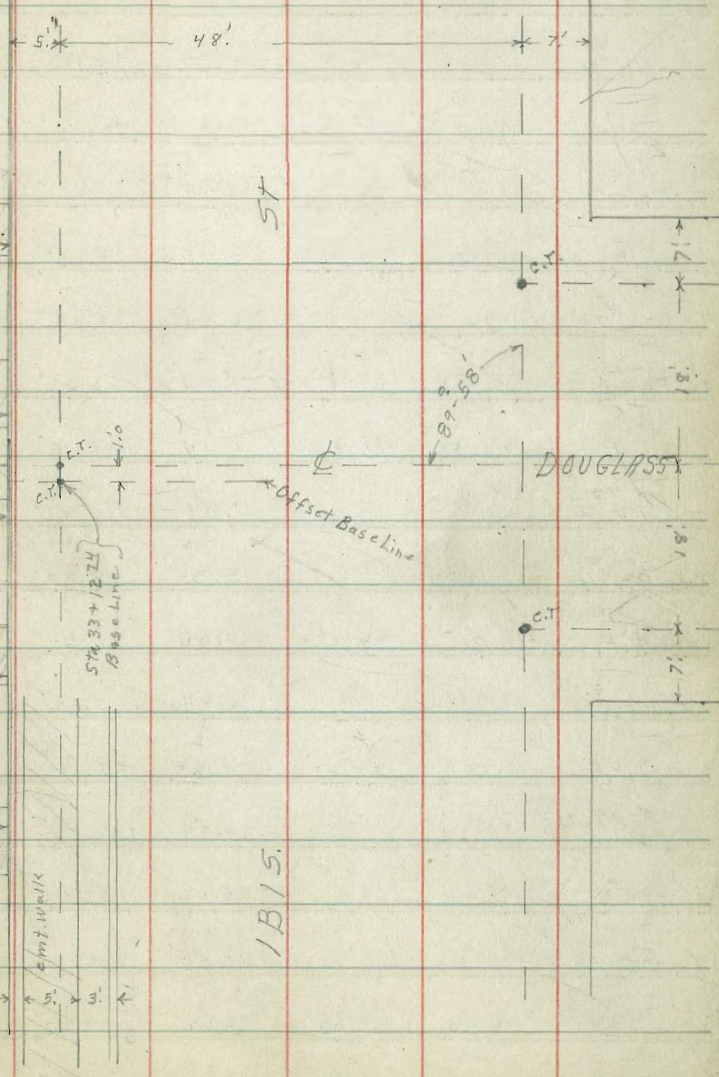 5'
48'
7'
ST
C.T.
7'
18'
89°-58'
C.T.
1.0
C.T.
℄
DOUGLASS
Offset Base Line
18'
Sta. 33+12.74
Base Line
C.T.
7'
IBIS.
cmt. walk
5'
3'